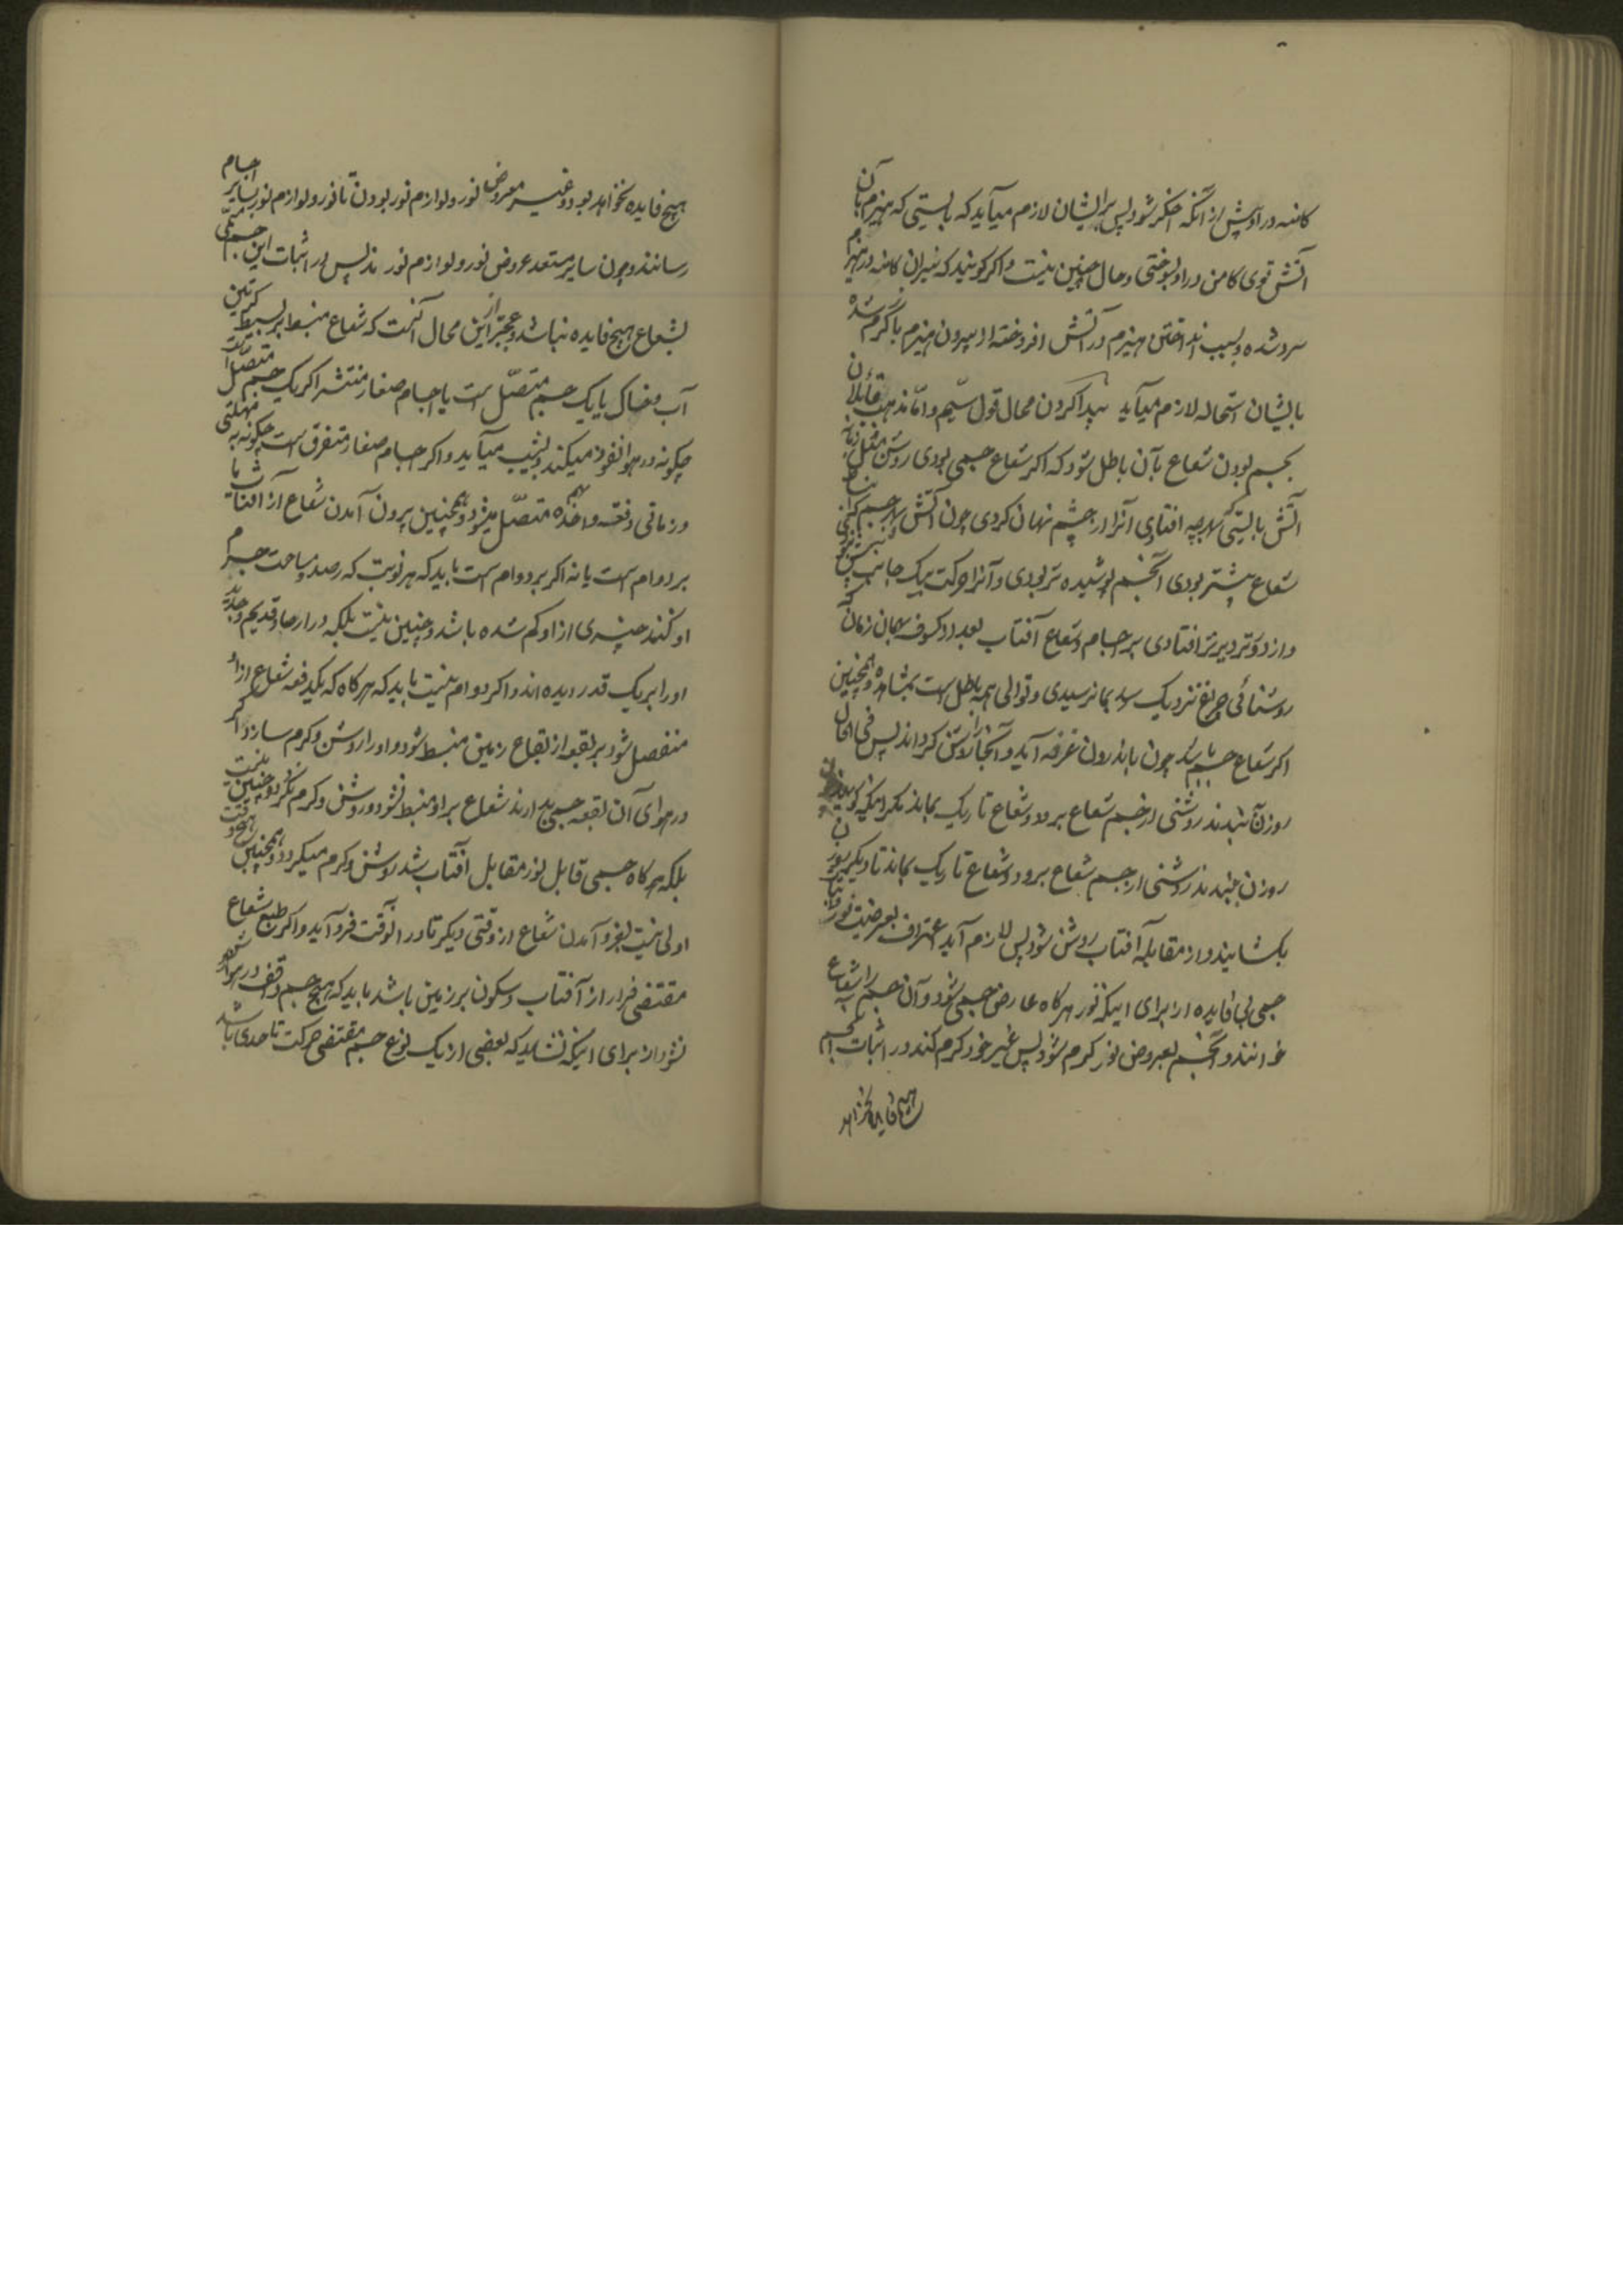 کامنه در او پیش از آنکه اخگر شود پس بر ایشان لازم میآید که بایستی که هیزم بآن
آتش قوی کامن در او بسوختی و حال چنین نیست و اگر گویند که نیران کامنه در هیزم
سرد شده و بسبب انداختن هیزم در آتش افروخته از بیرون هیزم باز گرم شده
بایشان استحاله لازم میآید پیدا کردن محال قول سیّم و امّا مذهب قائلان
بجسم بودن شعاع بآن باطل شود که اگر شعاع جسمی بودی روشن مثل
آتش بایستی که بهرچه افتادی آنرا از چشم نهان کردی چون آتش و هر جسم که
شعاع بیشتر بودی آنجسم پوشیده تر بودی و آنرا حرکت بیک جانب
و از دورتر دیرتر افتادی بر اجسام و شعاع آفتاب بعد از کسوف بهمان زمان که
روشنائی چراغ نزدیک رسد بما نرسیدی و توالی همه باطل است بمشاهده و همچنین
اگر شعاع جسم باشد چون باندرون غرفه آید و آنجا را روشن گرداند پس فی الحال
روزن ببندند روشنی از جسم شعاع برود و شعاع تاریک بماند مگر اینکه گویند
روزن ببندند روشنی از جسم شعاع برود و شعاع تاریک بماند تا دیگر روزن
بگشایند و از مقابله آفتاب روشن شود پس لازم آید اعتراف بعرضیت نور و اثبات
جسمی بی فایده از برای اینکه نور هرگاه عارض جسمی شود و آن جسم را شعاع
خوانند و آنجسم بعروض نور گرم شود پس غیر خود را گرم کند در اثبات آنجسم
هیچ فایده نخواهد
هیچ فایده نخواهد بود و غیر معروض نور و لوازم نور بودن تا نور و لوازم نور بسایر اجسام
رسانند و چون سایر مستعد عروض نور و لوازم نورند پس در اثبات این جسم مسمّی
بشعاع هیچ فایده نباشد و عجبتر از این محال آنست که شعاع منبسط بر بسیط کرتین
آب و خاک یا یک جسم متصّل است یا اجسام صغار منتشر اگر یک جسم متصّل است
چگونه در هوا نفوذ میکند و بنشیب میآید و اگر اجسام صغار متفرق است چگونه بی مهلتی
و زمانی دفعة واحدة بهم متصّل میشود و همچنین بیرون آمدن شعاع از آفتاب یا
بر دوام است یا نه اگر بر دوام است باید که هر نوبت که رصد و مساحت جرم
او کنند چیزی از او کم شده باشد و چنین نیست بلکه در ارصاد قدیم و جدید
او را بر یک قدر دیده اند و اگر دوام نیست باید که هرگاه که یکدفعه شعاع از او
منفصل شود بر بقعه از بقاع زمین منبسط شود و او را روشن و گرم سازد اگر
در هوای آن بقعه جسمی بدارند شعاع بر او منبسط نشود و روشن و گرم نگردد و چنین نیست
بلکه هرگاه جسمی قابل نور مقابل آفتاب باشد روشن و گرم میگردد و همچنین هیچ وقت
اولی نیست بفرو آمدن شعاع از وقتی دیگر تا در آنوقت فرو آید و اگر طبع شعاع
مقتضی فرار از آفتاب و سکون بر زمین باشد باید که هیچ جسم واقف در هوا
نشود از برای اینکه نشاید که بعضی از یک نوع جسم مقتضی حرکت تا حدی باشد